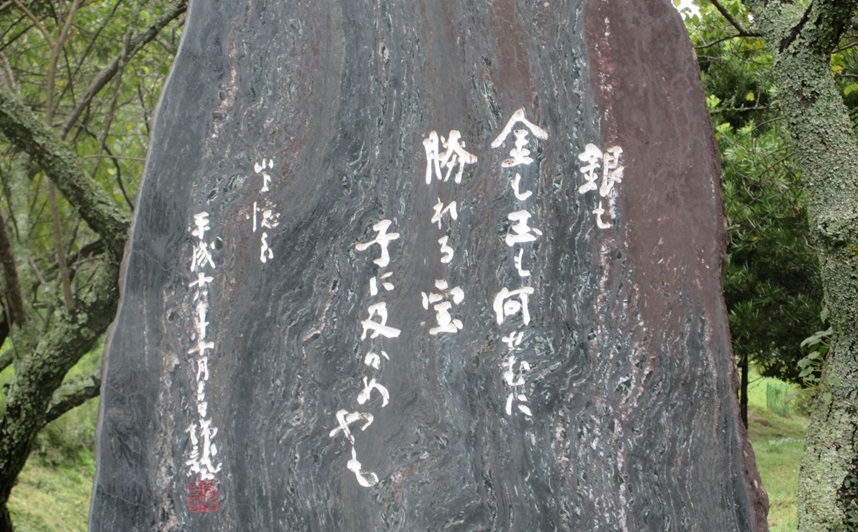 銀も
金も玉も何せむに
勝れる宝
子に及かめやも
山上憶良
平成十年十月吉